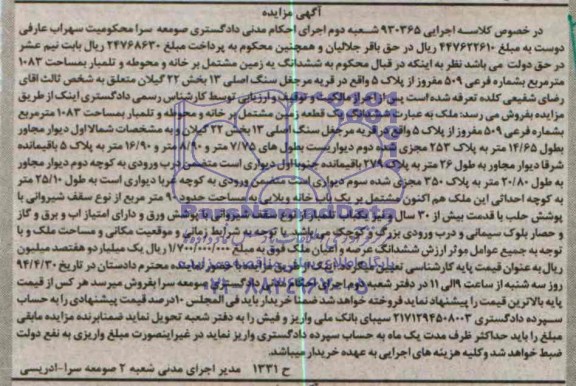 آگهی مزایده
در خصوص کلاسه اجرایی ۹۳۰۳۶۵ شعبه دوم اجرای احکام مدنی دادگستری صومعه سرا محکومیت سهراب عارفی
دوست به مبلغ ۴۴۷۶۲۲۶۱۰ ریال در حق باقر جلالیان و همچنین محکوم به پرداخت مبلغ ۲۴۷۶۸۶۳۰ ریال بابت نیم عشر
در حق دولت می باشد نظر به اینکه در قبال محکوم به ششدانگ یه زمین مشتمل بر خانه و محوطه و تلمبار بمساحت ۱۰۸۳
مترمربع بشماره فرعی ۵۰۹ مفروز از پلاک ۵ واقع در قریه مرجغل سنگ اصلی ۱۳ بخش ۲۲ گیلان متعلق به شخص ثالث آقای
رضای شفیعی کلده تعرفه شده است پس از احراز مالکیت و توقیف و ارزیابی توسط کارشناس رسمی دادگستری اینک از طریق
مزایده بفروش می رسد: ملک به عبارت ششدانگ یک قطعه زمین مشتمل بر خانه و محوطه و تلمبار بمساحت ۱۰۸۳ مترمربع
بشماره فرعی ۵۰۹ مفروز از پلاک ۵ واقع در قریه مرجغل سنگ اصلی ۱۳ بخش ۲۲ گیلان و به مشخصات شمالا اول دیوار مجاور
بطول ۱۴/۶۵ متر به پلاک ۲۵۳ مجزی شده دوم دیواریست بطول های ۷/۷۵ متر و ۹/۸۰ متر و ۱۶/۹۰ متر به پلاک ۵ باقیمانده
شرقا دیوار مجاور به طول ۲۶ متر به پلاک ۲۷۹ باقیمانده جنوبا اول دیواری است متضمن درب ورودی به کوچه دوم دیوار مجاور
به طول ۲۰/۸۰ متر به پلاک ۳۵۰ مجزی شده سوم دیواری است متضمن ورودی به کوچه غربا دیواری است به طول ۲۵/۱۰ متر
به کوچه احداثی این ملک هم اکنون مشتمل بر یک باب خانه ویلایی به مساحت حدود ۹۰ متر مربع از نوع سقف شیروانی با
پوشش حلب با قدمت بیش از ۳۰ سال و یک تلمبار از نوع سقف شیروانی با پوشش ورق و دارای امتیاز آب و برق و گاز
و حصار بلوک سیمانی و درب ورودی بزرگ و کوچک می باشد. با توجه به شرایط زمانی و موقعیت مکانی و مساحت ملک و با
توجه به جمیع عوامل موثر ارزش ششدانگ عرصه و اعیان ملک فوق به مبلغ ۱/۷۰۰/۰۰۰/۰۰۰ ریال یک میلیارد و هفتصد میلیون
ریال به عنوان قیمت پایه کارشناسی تعیین میگردد از طریق مزایده با حضور نماینده محترم دادستان در تاریخ ۹۴/۴/۳۰
روز سه شنبه از ساعت ۹ الی ۱۱ در دفتر شعبه دوم اجرای احکام مدنی دادگستری صومعه سرا بفروش میرسد هر کس از قیمت
پایه بالاترین قیمت را پیشنهاد نماید فروخته خواهد شد ضمنا خریدار باید فی المجلس ۱۰ درصد قیمت پیشنهادی را به حساب
سپرده دادگستری ۲۱۷۱۲۹۴۵۰۸۰۰۳ سیبای بانک ملی واریز و فیش را به دفتر شعبه تحویل نماید ضمنا برنده مزایده مابقی
مبلغ را باید حداکثر ظرف مدت یک ماه به حساب سپرده دادگستری واریز نماید در غیر اینصورت مبلغ واریزی به نفع دولت
ضبط خواهد شد و کلیه هزینه های اجرایی به عهده خریدار میباشد.
ح ۱۳۳۱ مدیر اجرای مدنی شعبه ۲ صومعه سرا-ادریسی